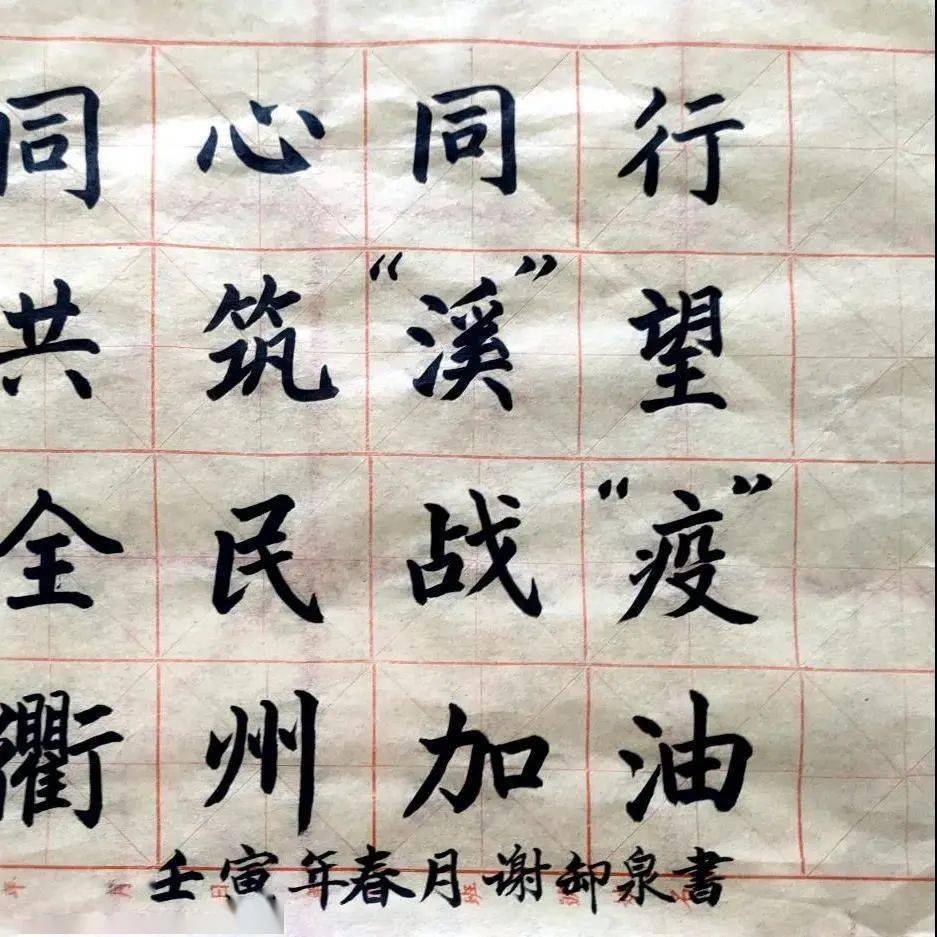 同心同行
共筑“溪”望
全民战“疫”
衢州加油
壬寅年春月谢卸泉書